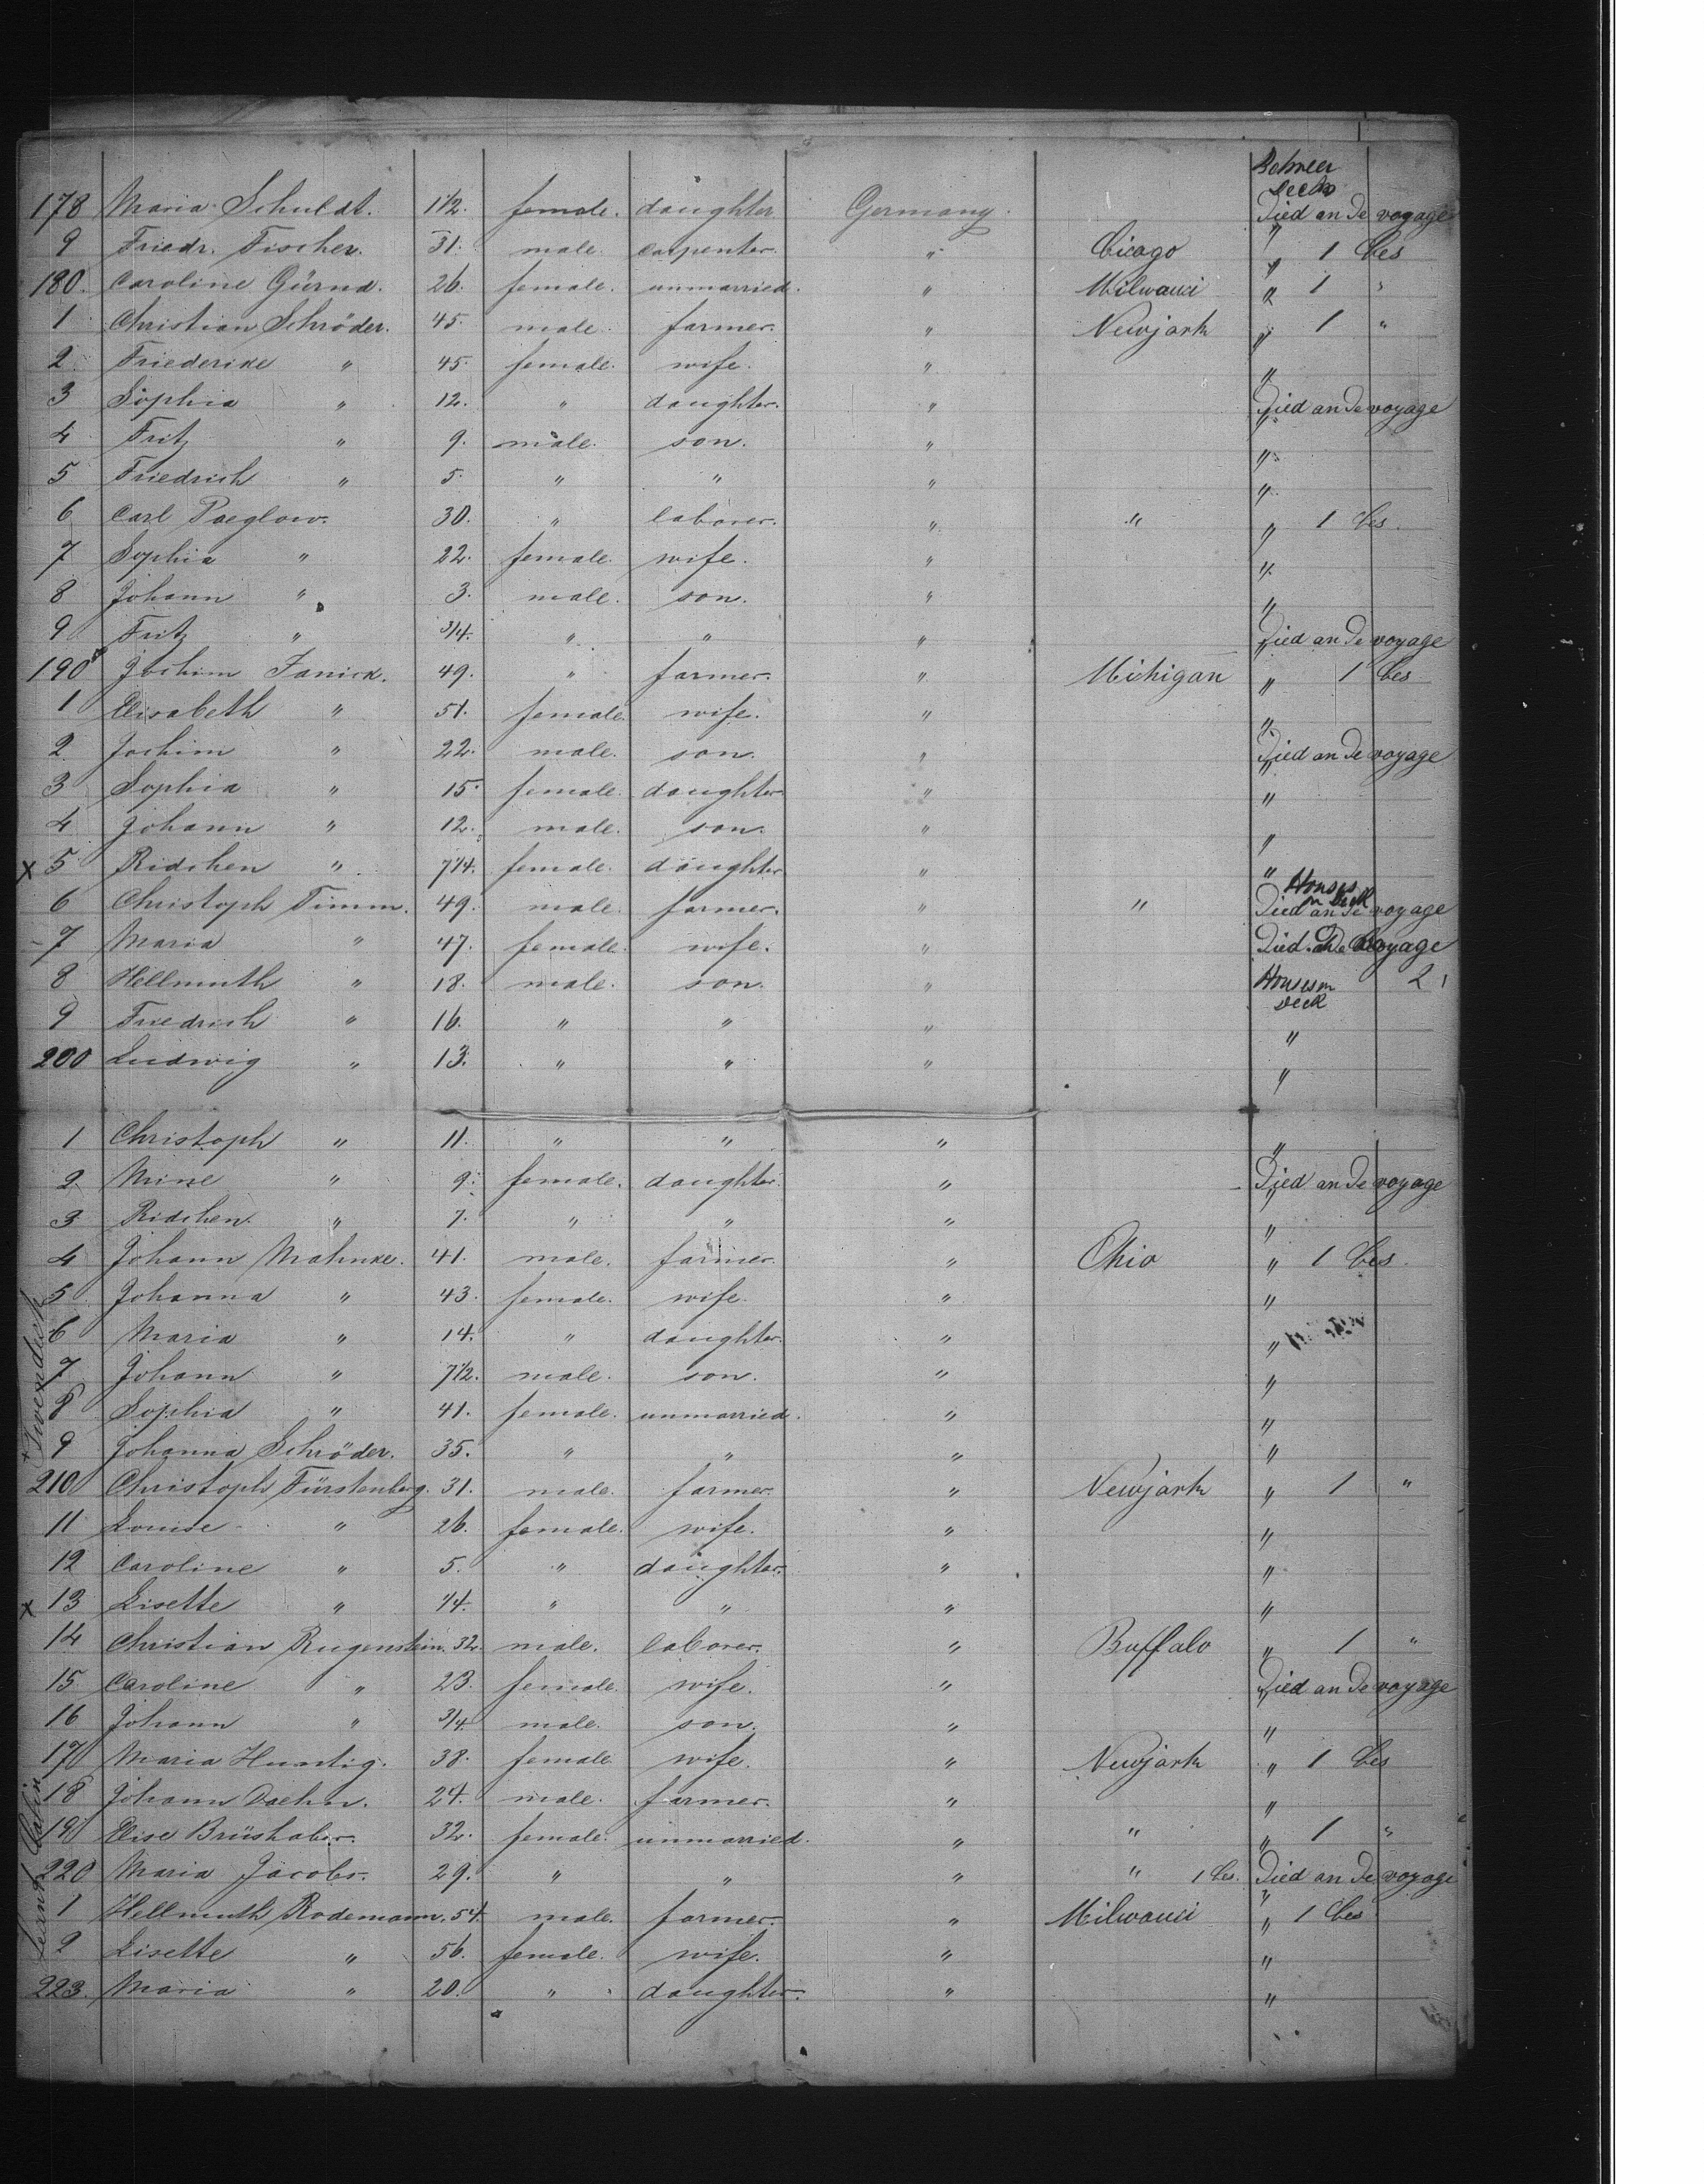 Between Deck
178 Maria Schuldt. 1 1/2. female. daughter Germany. Died an de voyage
9 Friedr. Fischer. 31. male. carpenter. " Cicago " 1 Ces
180. Caroline Gürnd. 26. female. unmarried. " Milwauci " 1 "
1 Christian Schröder. 45. male. farmer. " Newjork " 1 "
2. Friederike " 45. female. wife. " "
3 Sophia " 12. " daughter. " Died an de voyage
4 Fritz " 9. male. son. " "
5 Friedrich " 5. " " " "
6 Carl Paeglow. 30. " laborer. " " " 1 Ces.
7 Sophia " 22. female. wife. " "
8 Johann " 3. male. son. " "
9 Fritz " 3/4. " " " Died an de voyage
190 Jochim Janick. 49. " farmer. " Michigan " 1 Ces
1 Elisabeth " 51. female. wife. " "
2 Jochim " 22. male. son. " Died an de voyage
3 Sophia " 15. female. daughter. " "
4 Johann " 12. male. son. " "
x 5 Ridchen " 7 1/4. female. daughter " "
6 Christoph Timm. 49. male. farmer. " " Houses on Deck Died an de voyage
7 Maria " 47. female. wife. " Died an De voyage
8 Hellmuth " 18. male. son. " Houses on Deck 2
9 Friedrich " 16. " " " "
200 Ludwig " 13. " " " "
1 Christoph " 11. " " " "
2 Mine " 9. female. daughter. " Died an de voyage
3 Ridchen. " 7. " " " "
4 Johann Mahnke. 41. male. farmer. " Ohio " 1 Ces.
5 Johanna " 43. female. wife. " "
6 Maria " 14. " daughter. " "
7 Johann " 7 1/2. male. son. " "
8 Sophia " 41. female. unmarried. " "
9 Johanna Schröder. 35. " " " "
210 Christoph Fürstenberg. 31. male. farmer. " Newjork " 1 "
11 Louise " 26. female. wife. " "
12 Caroline " 5. " daughter. " "
x 13 Lisette " 1/4. " " " "
14 Christian Rugenstein. 32. male. laborer. " Buffalo " 1 "
15 Caroline " 23. female. wife. " Died an de voyage
16 Johann " 3/4. male. son. " "
17 Maria Huntig. 38. female. wife. " Newjork " 1 Ces
18 Johann Daehn. 24. male. farmer. " "
19 Elise Brüshaber. 32. female. unmarried. " " " 1 "
220 Maria Jacobs. 29. " " " " 1 Ces. Died an de voyage
1 Hellmuth Rodemann. 54. male. farmer. " Milwauci " 1 Ces
2 Lisette " 56. female. wife. " "
223. Maria " 20. " daughter. " "